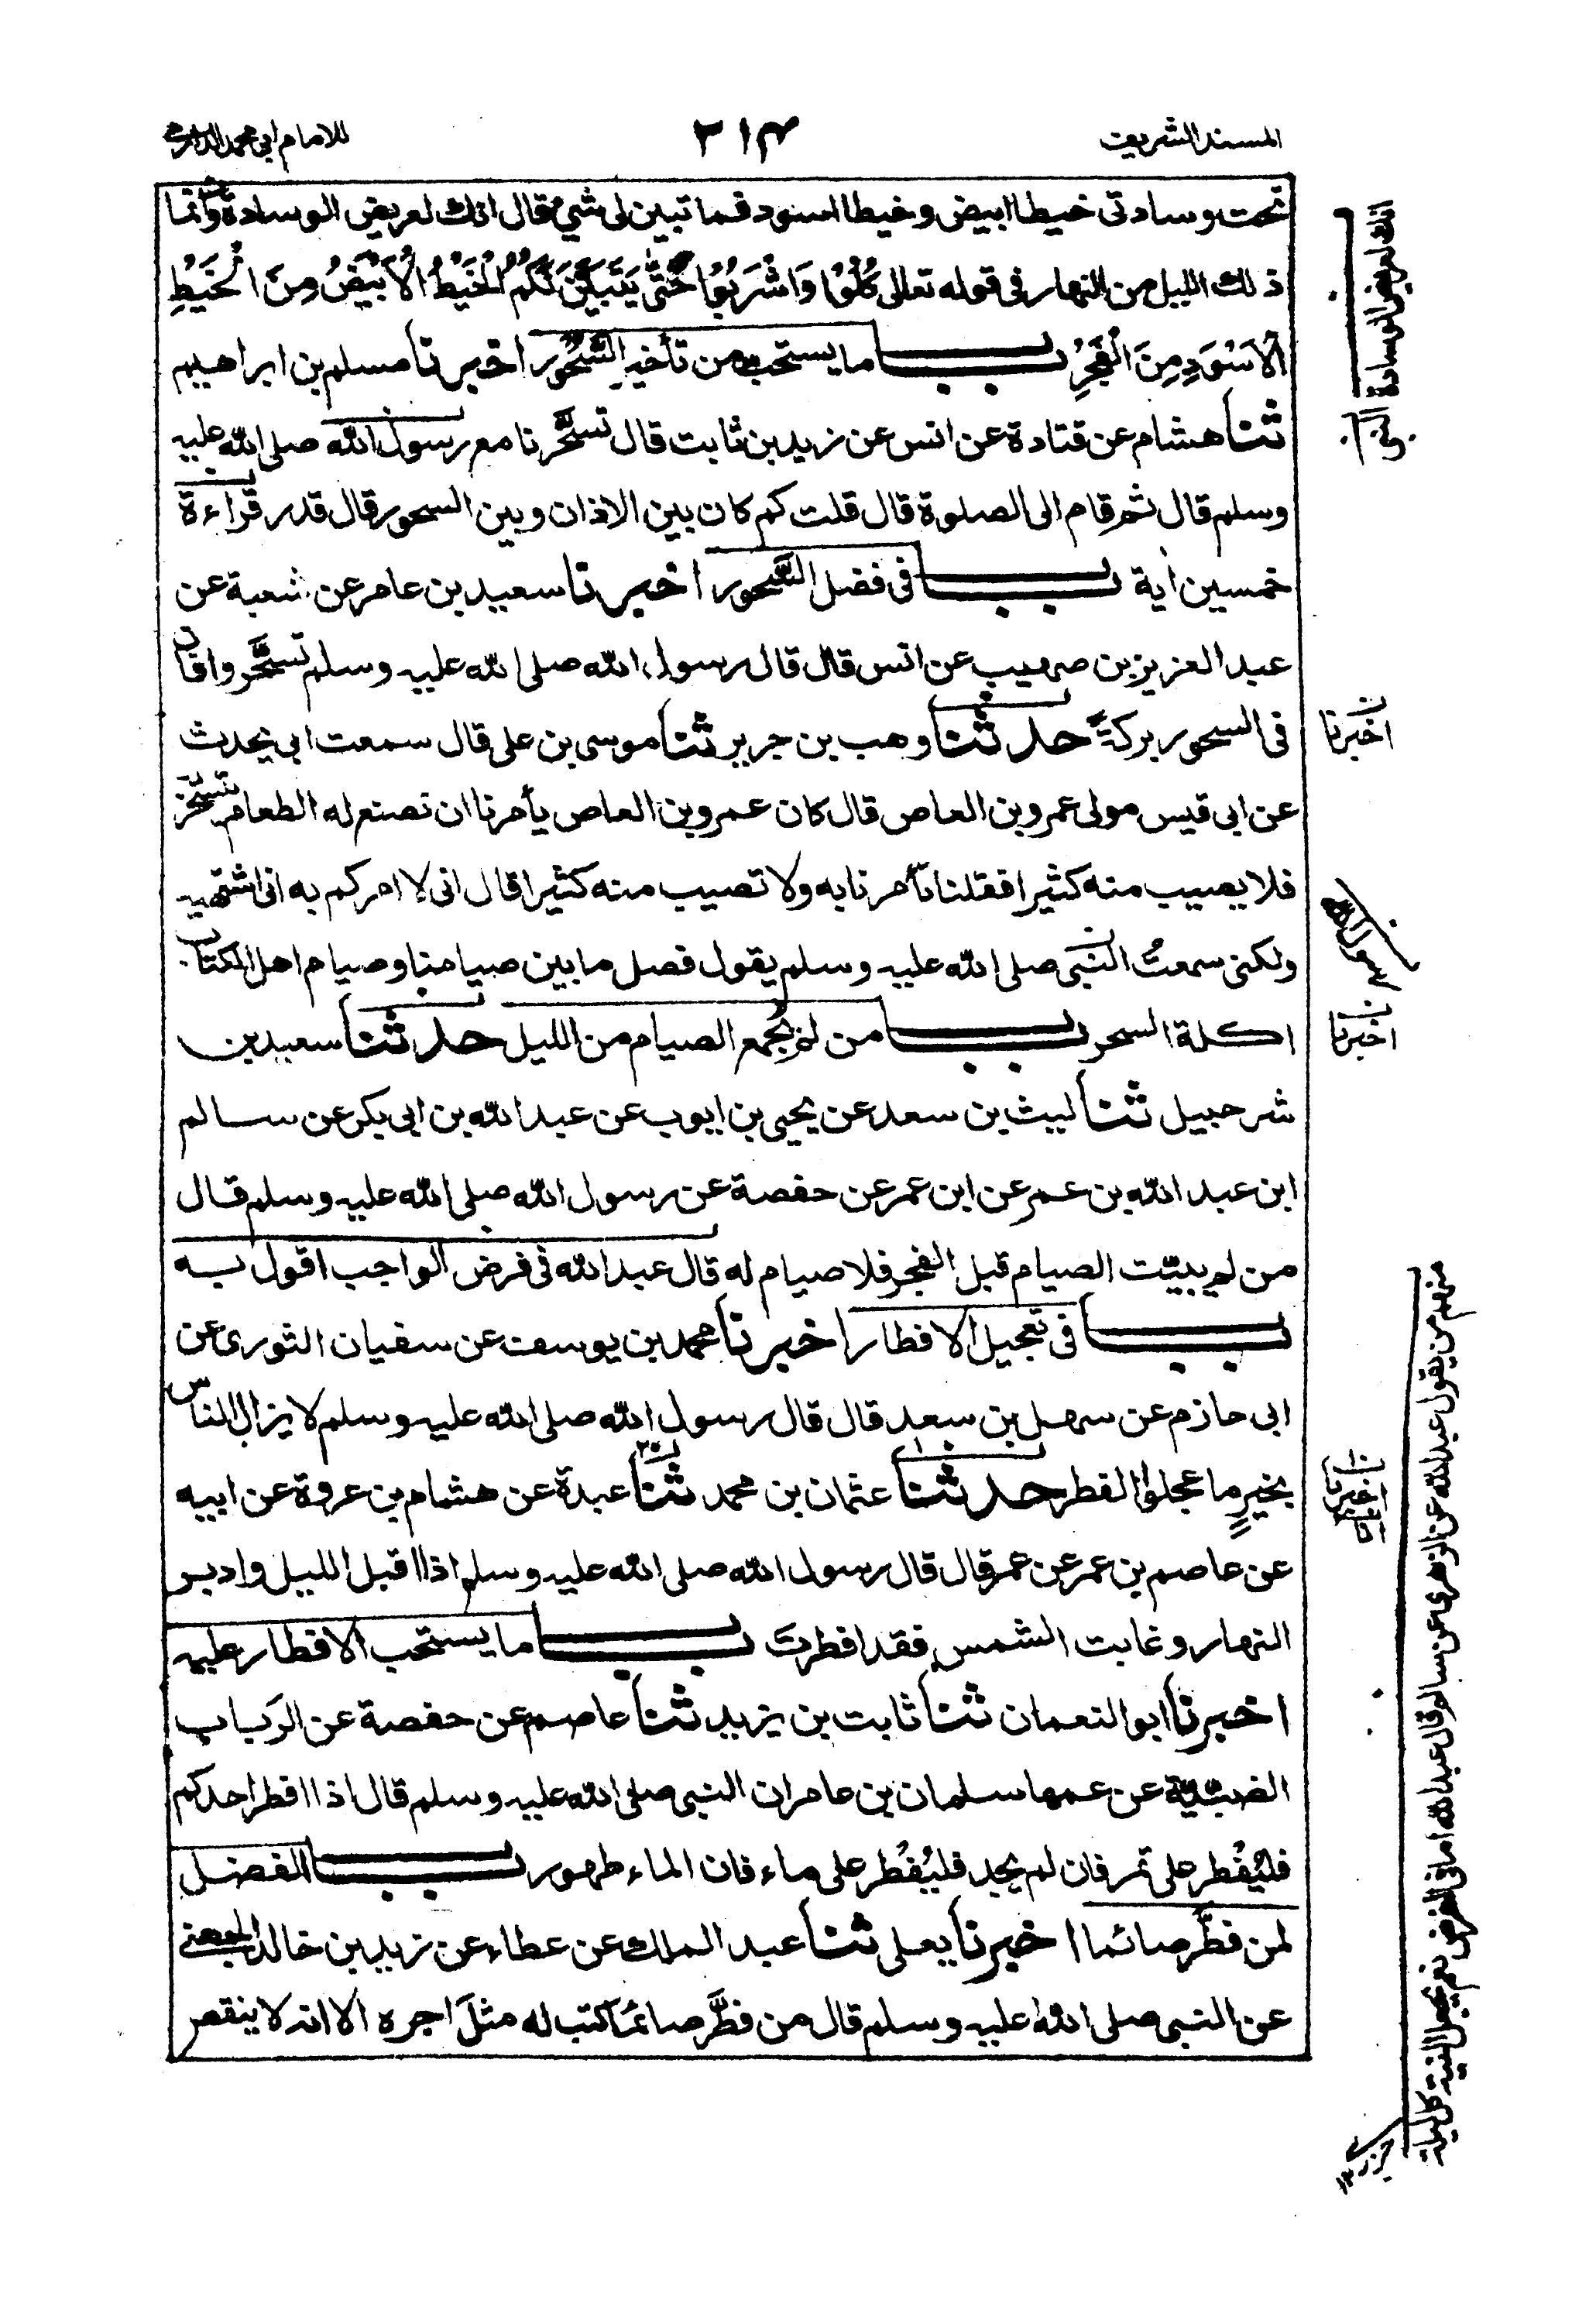 المسند الشريف
٢١٤
للامام ابي محمد الدارمي
تحت وسادتى خيطا ابيض وخيطا اسود فما تبين لى شيء قال انك لعريض الوسادة وانما
ذلك الليل من النهار فى قوله تعالى كُلُوْا وَاشْرَبُوْا حَتّٰى يَتَبَيَّنَ لَكُمُ الْخَيْطُ الْاَبْيَضُ مِنَ الْخَيْطِ
الْاَسْوَدِ مِنَ الْفَجْرِ باب ما يستحب من تأخير السُّحُور اخبرنا مسلم بن ابراهيم
ثنا هشام عن قتادة عن انس عن زيد بن ثابت قال تسحَّرنا مع رسول الله صلى الله عليه
وسلم قال ثم قام الى الصلوة قال قلت كم كان بين الاذان وبين السحور قال قدر قراءة
خمسين اية باب فى فضل السَّحور اخبرنا سعيد بن عامر عن شعبة عن
عبد العزيز بن صهيب عن انس قال قال رسول الله صلى الله عليه وسلم تسحَّروا فان
فى السحور بركةً حدثنا وهب بن جرير ثنا موسى بن على قال سمعت ابى يحدث
عن ابى قيس مولى عمرو بن العاص قال كان عمرو بن العاص يأمرنا ان نصنع له الطعام يتسحَّر
فلا يصيب منه كثيرا فقلنا تأمرنا به ولا تصيب منه كثيرا قال انى لا امركم به انى اشتهيه
ولكنى سمعتُ النبى صلى الله عليه وسلم يقول فصل ما بين صيامنا وصيام اهل الكتاب
اكلة السحر باب من لم يُجمع الصيام من الليل حدثنا سعيد بن
شرحبيل ثنا ليث بن سعد عن يحيى بن ايوب عن عبد الله بن ابى بكر عن سالم
ابن عبد الله بن عمر عن ابن عمر عن حفصة عن رسول الله صلى الله عليه وسلم قال
من لم يبيّت الصيام قبل الفجر فلا صيام له قال عبد الله فى فرض الواجب اقول به
باب فى تعجيل الافطار اخبرنا محمد بن يوسف عن سفيان الثورى عن
ابى حازم عن سهل بن سعد قال قال رسول الله صلى الله عليه وسلم لا يزال الناس
بخيرٍ ما عجلوا الفطر حدثنا عثمان بن محمد ثنا عبدة عن هشام بن عروة عن ابيه
عن عاصم بن عمر عن عمر قال قال رسول الله صلى الله عليه وسلم اذا اقبل الليل وادبر
النهار وغابت الشمس فقد افطرتَ باب ما يستحب الافطار عليه
اخبرنا ابو النعمان ثنا ثابت بن يزيد ثنا عاصم عن حفصة عن الرَباب
الضبّيّة عن عمها سلمان بن عامر ان النبى صلى الله عليه وسلم قال اذا افطر احدكم
فليُفطر على تمر فان لم يجد فليُفطر على ماء فان الماء طهور باب الفضل
لمن فطَّر صائما اخبرنا يعلى ثنا عبد الملك عن عطاء عن زيد بن خالد الجهنى
عن النبى صلى الله عليه وسلم قال من فطَّر صائمًا كتب له مثلَ اجره الا انه لا ينقص
انك لعريض الوسادة
اخبرنا
رسول الله
اخبرنا
اخبرنا
منهم من يقول عبد الله عن الزهرى عن سالم وقال عبد الله اما فى الفرض نعم يجعل النية كل ليلة